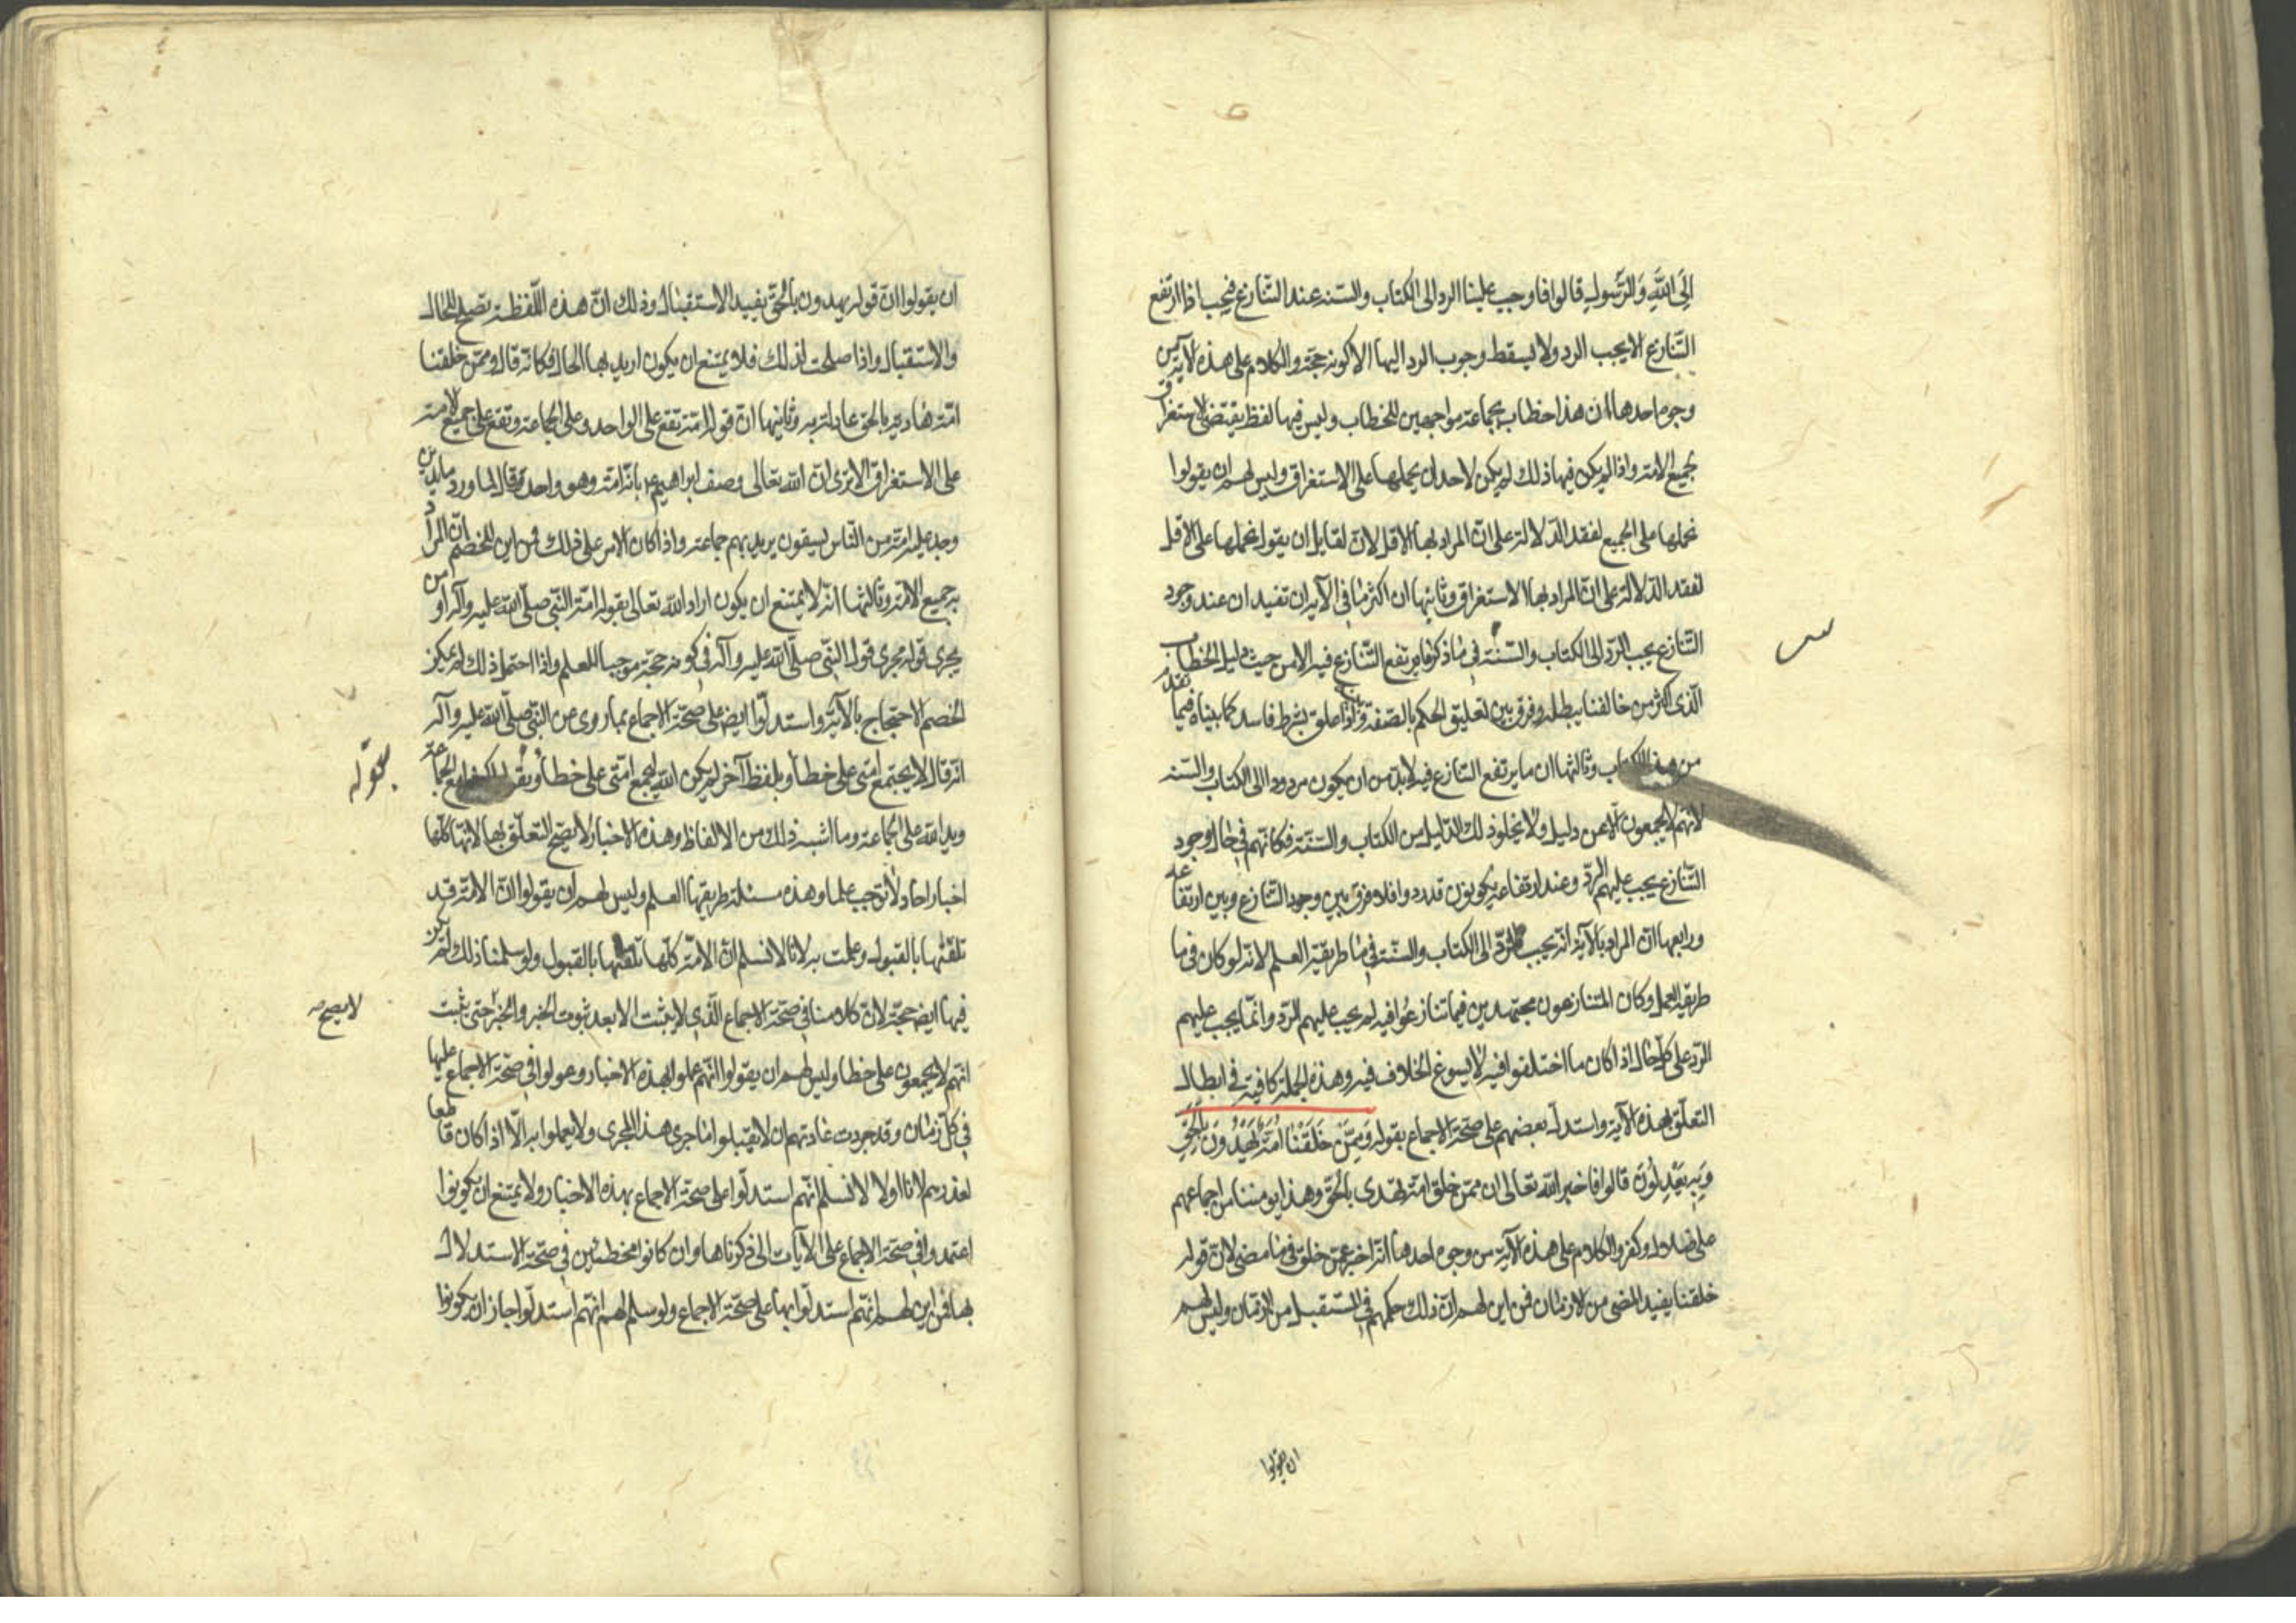 اِلَى اللّٰهِ وَالرَّسُولِ قالوا فاوجب علينا الرد الى الكتاب والسنه عند التنازع فيجب اذا ارتفع
التّنازع الا يجب الرد ولا يسقط وجوب الرد اليهما الا لكونه حجة والكلام على هذه الآية من
وجوه احدها ان هذا خطاب لجماعة مواجهين للخطاب وليس فيها لفظ يقتضى الاستغراق
لجميع الامة واذا لم يكن فيها ذلك لم يكن لاحد ان يحملها على الاستغراق وليس لهم ان يقولوا
نحملها على الجميع لفقد الدّلالة على انّ المراد بها الاقل لانّ لقايل ان يقول نحملها على الاقل
لفقد الدّلالة على انّ المراد بها الاستغراق وثانيها ان اكثر ما فى الآية ان تفيد ان عند وجود
التّنازع يجب الردّ الى الكتاب والسّنّة فى ما ذكر فاما يرتفع التّنازع فيه الا من حيث دليل الخطاب
الّذى اكثر من خالفنا يبطله وفرق بين تعليق الحكم بالصّفة واذا علق بشرط فاسد كما بيناه فيما تقدّم
من هذا الكتاب وثالثها ان ما يرتفع التنازع فيه لابدّ من ان يكون مردودا الى الكتاب والسّنه
لانّهم لا يجمعون الّا عن دليل ولا يخلو ذلك الدّليل من الكتاب والسّنّة فكانّهم فى حال وجود
التّنازع يجب عليهم الردّ وعند ارتفاعه يكونون قد ردوا فلا فرق بين وجود التّنازع وبين ارتفاعه
ورابعها انّ المراد بالآية انّه يجب الردّ الى الكتاب والسّنّة فى ما طريقه العلم لانّه لو كان فى ما
طريقه العمل وكان المتنازعون مجتهدين فيما تنازعوا فيه لم يجب عليهم الردّ وانّما يجب عليهم
الردّ على كلّ حال اذا كان ما اختلفوا فيه لا يسوغ الخلاف فيه وهذه الجملة كافية فى ابطال
التعلّق بهذه الآية واستدلّ بعضهم على صحّة الاجماع بقوله وَمِمَّنْ خَلَقْنَا اُمَّةٌ يَهْدُونَ بِالْحَقِّ
وَبِهِ يَعْدِلُونَ قالوا فاخبر الله تعالى ان ممّن خلق امّة تهدى بالحقّ وهذا يومننا من اجماعهم
على ضلال وكفر والكلام على هذه الآية من وجوه احدها انّه اخبر عمّن خلق فى ما مضى لانّ قوله
خلقنا يفيد المضى من الازمان فمن اين لهم انّ ذلك حكمهم فى المستقبل من الازمان وليس لهم
ان يقولوا
ان يقولوا انّ قوله يهدون بالحقّ يفيد الاستقبال وذلك انّ هذه اللّفظة تصلح للحال
والاستقبال واذا صلحت لذلك فلا يمتنع ان يكون اريد بها الحال فكانّه قال وممّن خلقنا
امّة هادية بالحق عادلة به وثانيها انّ قوله امّة تقع على الواحد وعلى الجماعة وتقع على جميع الامة
على الاستغراق الا ترى انّ الله تعالى وصف ابراهيم ع بانّه امّة وهو واحد وقال لما ورد ماء مدين
وجد عليه امّة من النّاس يسقون يريد بهم جماعة واذا كان الامر على ذلك فمن اين للخصم انّ المراد
به جميع الامّة وثالثها انّه لا يمتنع ان يكون اراد الله تعالى بقوله امّة النّبى صلّى الله عليه وآله او من
يجرى قوله مجرى قول النّبى صلّى الله عليه وآله فى كونه حجّة موجبا للعلم واذا احتمل ذلك لم يمكن
الخصم الاحتجاج بالآية واستدلّوا ايضا على صحّة الاجماع بما روى عن النّبى صلّى الله عليه وآله
انّه قال لا يجتمع امّتى على خطأ وبلفظ آخر لم يكن الله ليجمع امّتى على خطأ وبقوله كونوا مع الجماعة
بقوله
ويد الله على الجماعة وما اشبه ذلك من الالفاظ وهذه الاخبار لا يصحّ التعلّق بها لانّها كلّها
اخبار احاد لا توجب علما وهذه مسئلة طريقها العلم وليس لهم ان يقولوا انّ الامّة قد
تلقّتها بالقبول وعملت به لانّا لا نسلم انّ الامّة كلّها تلقّتها بالقبول ولو سلمنا ذلك لم يكن
فيها ايضا حجّة لانّ كلامنا فى صحّة الاجماع الّذى لا يثبت الا بعد ثبوت الخبر والخبر حتى يثبت
لا يصح
انّهم لا يجمعون على خطا وليس لهم ان يقولوا انّهم عملوا بهذه الاخبار وعولوا فى صحّة الاجماع عليها
فى كلّ زمان وقد جرت عادتهم ان لا يقبلوا ما جرى هذا المجرى ولا يعملوا به الّا اذا كان قاطعا
لعذرهم لانا اولا لا نسلم انّهم استدلّوا على صحّة الاجماع بهذه الاخبار ولا يمتنع ان يكونوا
اعتمدوا فى صحّة الاجماع على الآيات الى ذكرناها وان كانوا مخطئين فى صحّة الاستدلال
بها فمن اين لهم انّهم استدلّوا بها على صحّة الاجماع ولو سلم لهم انّهم استدلّوا جاز ان يكونوا